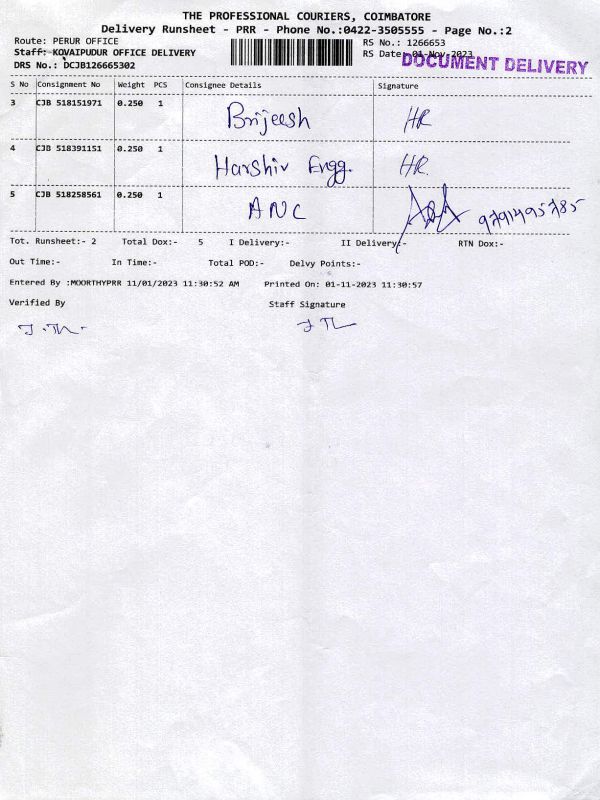 THE PROFESSIONAL COURIERS, COIMBATORE
Delivery Runsheet - PRR - Phone No.:0422-3505555 - Page No.:2
Route: PERUR OFFICE
RS No.: 1266653
Staff: KOVAIPUDUR OFFICE DELIVERY
RS Date: 01-Nov-2023
DOCUMENT DELIVERY
DRS No.: DCJB126665302
S No Consignment No Weight PCS Consignee Details Signature
3 CJB 518151971 0.250 1 Brijeesh HR
4 CJB 518391151 0.250 1 Harshiv Engg. HR.
5 CJB 518258561 0.250 1 ANC 9791495785
Tot. Runsheet:- 2 Total Dox:- 5 I Delivery:- II Delivery:- RTN Dox:-
Out Time:- In Time:- Total POD:- Delvy Points:-
Entered By :MOORTHYPRR 11/01/2023 11:30:52 AM Printed On: 01-11-2023 11:30:57
Verified By Staff Signature